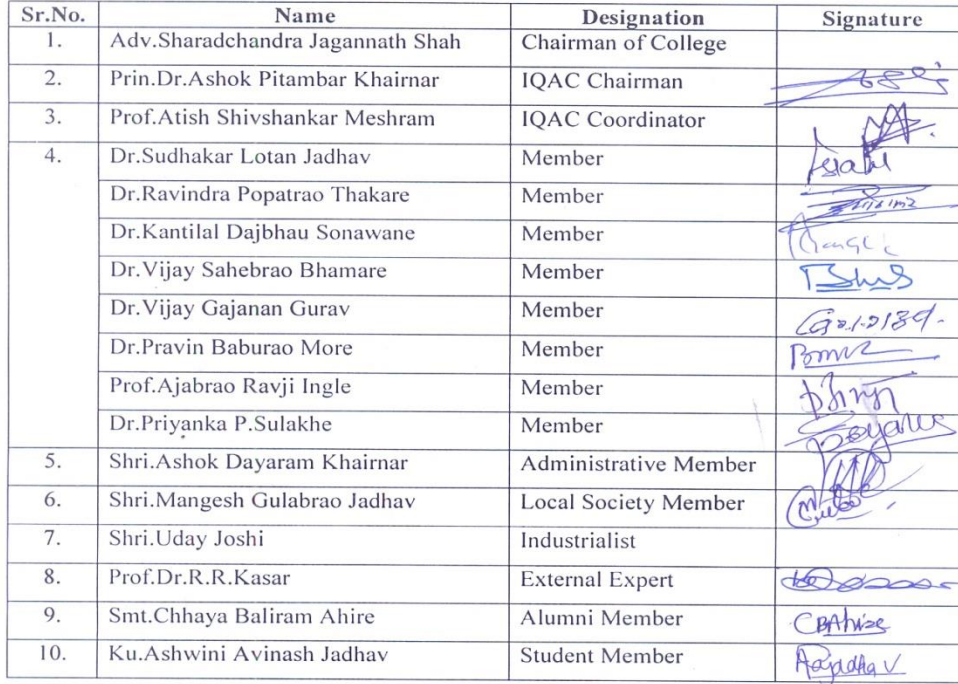 Sr.No. Name Designation Signature
1. Adv.Sharadchandra Jagannath Shah Chairman of College
2. Prin.Dr.Ashok Pitambar Khairnar IQAC Chairman
3. Prof.Atish Shivshankar Meshram IQAC Coordinator
4. Dr.Sudhakar Lotan Jadhav Member
Dr.Ravindra Popatrao Thakare Member
Dr.Kantilal Dajbhau Sonawane Member
Dr.Vijay Sahebrao Bhamare Member
Dr.Vijay Gajanan Gurav Member
Dr.Pravin Baburao More Member
Prof.Ajabrao Ravji Ingle Member
Dr.Priyanka P.Sulakhe Member
5. Shri.Ashok Dayaram Khairnar Administrative Member
6. Shri.Mangesh Gulabrao Jadhav Local Society Member
7. Shri.Uday Joshi Industrialist
8. Prof.Dr.R.R.Kasar External Expert
9. Smt.Chhaya Baliram Ahire Alumni Member CBAhire
10. Ku.Ashwini Avinash Jadhav Student Member AAJadhav